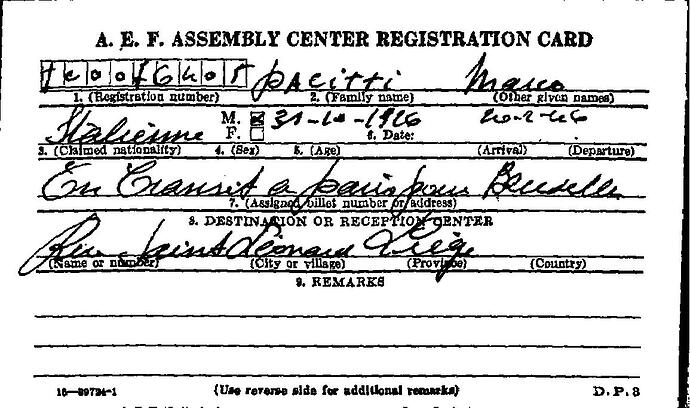 A. E. F. ASSEMBLY CENTER REGISTRATION CARD
pacitti Marco
1. (Registration number) 2. (Family name) (Other given names)
Italienne M. ☒ 31-10-1926 20-2-46
F. ☐ 6. Date:
3. (Claimed nationality) 4. (Sex) 5. (Age) (Arrival) (Departure)
En Transit a paris pour Bruxelles
7. (Assigned billet number or address)
8. DESTINATION OR RECEPTION CENTER
Rue Saint Léonard Liège
(Name or number) (City or village) (Province) (Country)
9. REMARKS
16—39724-1 (Use reverse side for additional remarks) D.P.3